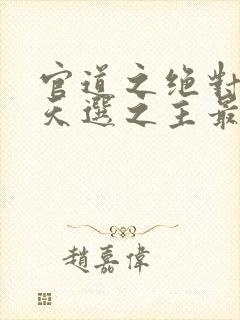 官道之绝對
天選之主最
趙嘉偉